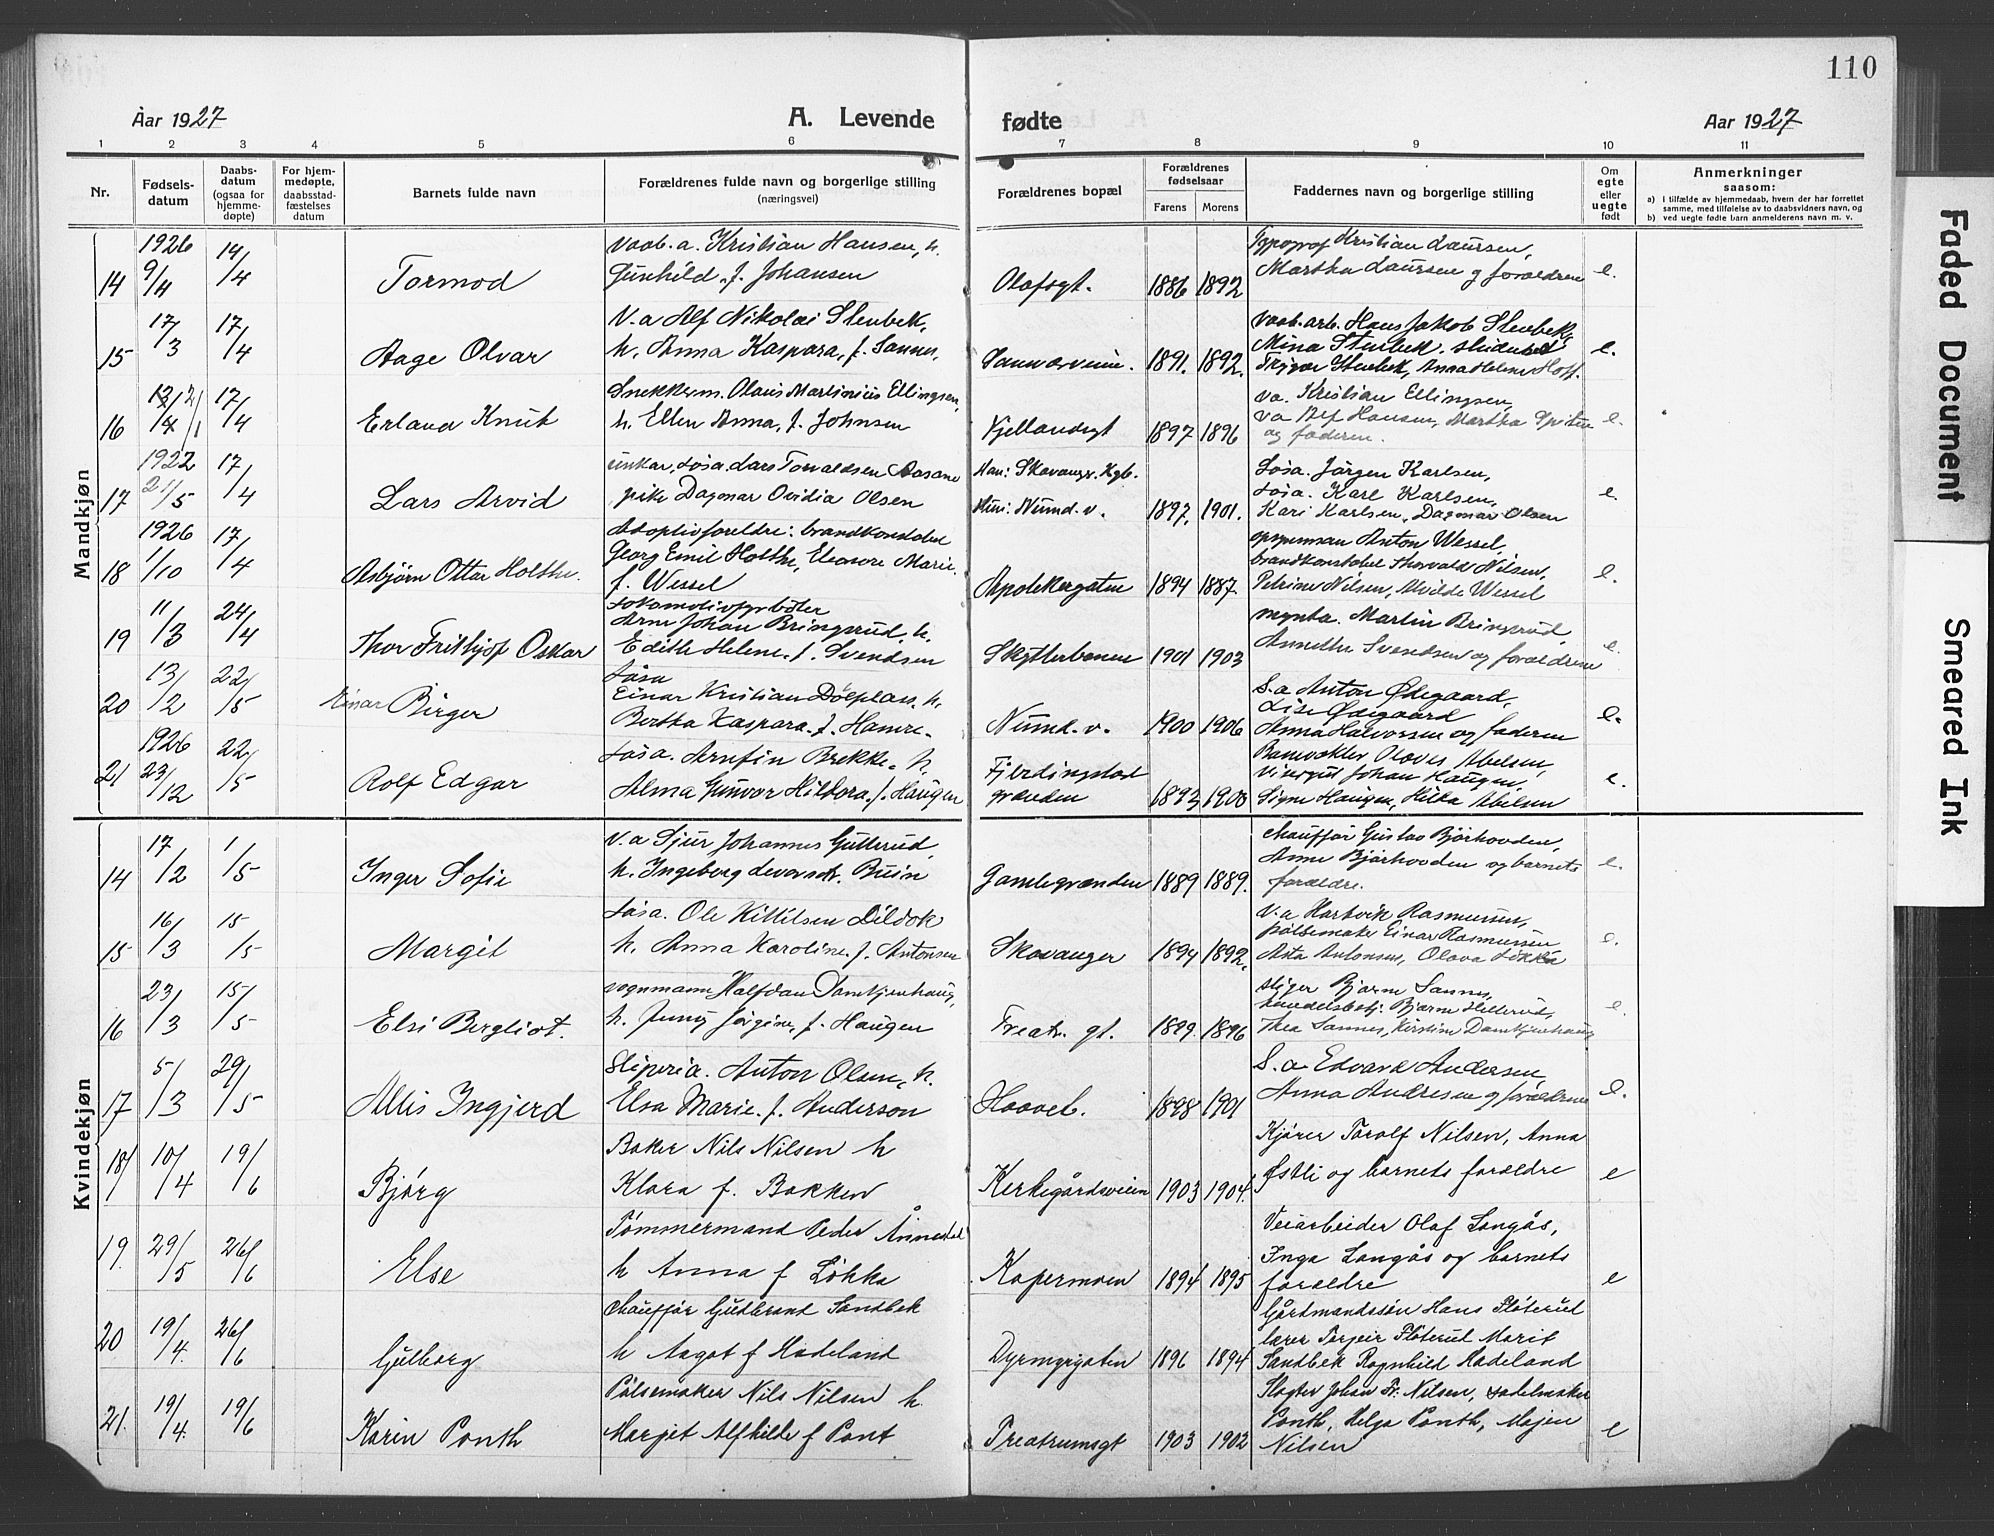 110
Aar 1927
A. Levende
fødte
Aar 1927
1 2 3 4 5 6 7 8 9 10 11
Nr.
Fødsels-
datum
Daabs-
datum
(ogsaa for
hjemme-
døpte)
For hjem-
medøpte,
daabsstad-
fæstelses
datum
Barnets fulde navn
Forældrenes fulde navn og borgerlige stilling
(næringsvei)
Forældrenes bopæl
Forældrenes
fødselsaar
Farens Morens
Faddernes navn og borgerlige stilling
Om
egte
eller
uegte
født
Anmerkninger
saasom:
a) i tilfælde av hjemmedaab, hvem der har forrettet
samme, med tilføielse av to daabsvidners navn, og
b) ved uegte fødte barn anmelderens navn m. v.
Mandkjøn
14
1926
9/4
14/4
Tormod
Vaab. a. Kristian Hansen, h.
Gunhild, f. Johansen
Olafsgt.
1886 1892
Typograf Kristian Laursen,
Martha Laursen g forældrene
e.
15
17/3
17/4
Aage Olvar
V. a Alf Nikolai Stenbek,
h. Anna Kaspara, f. Sannes,
Sannesveien.
1891. 1892.
Vaab. arb. Hans Jakob Stenbek,
Mina Stenbek, student
Trygve Stenbek, Anna Helene Hoff.
e.
16
17/4
Erland Knut
Snekkerm. Olaus Martinius Ellingsen,
h. Ellen Anna, f. Johnsen
Kjellandsgt
1897 1896
va. Kristian Ellingsen,
va Alf Hansen, Martha
og faderen.
e.
17
1922
21/5
17/4
Lars Arvid
unkar, løsa. Lars Torvaldsen Aasane
pike Dagmar Ovidia Olsen
Han: Skavanger, Kgb.
Hun: Numd. v.
1897. 1901.
Løsa. Jørgen Karlsen,
Løsa. Karl Karlsen,
Kari Karlsen, Dagmar Olsen
e.
18
1926
1/10
17/4
Asbjørn Ottar Holthe.
Adoptivforeldre: brandkonstabel
Georg Emil Holthe, Eleonore Marie,
f. Wessel
Apotekergaten
1894 1887.
opsynsman Anton Wessel,
brandkonstabel Thorvald Nilsen,
Petrine Nilsen, Alvilde Wessel
e.
19
11/3
24/4
Thor Frithjof Oskar
Lokomotivfyrbøter
Arne Johan Bringsrud, h.
Edith Helene, f. Svendsen
Skytterbanen
1901 1903
Martin Bringsrud,
Annethe Svendsen og forældrene
e.
20
13/2
22/5
Einar Birger
Løsa
Einar Kristian Dølplass, h.
Bertha Kaspara, f. Hamre.
Numd. v.
1900 1906
S. a Anton Ødegaard,
Lise Ødegaard
Anna Halvorsen og faderen
e.
21
1926
23/12
22/5
Rolf Edgar
Løsa. Arnfin Brekke, h.
Alma Gunvor Hildora, f. Haugen
Fjerdingstad
grænden
1893 1900
Banevokter Olaves Abelsen,
visergut Johan Haugen,
Signe Haugen, Hilda Abelsen
e.
Kvindekjøn
14
17/2
1/5
Inger Sofie
V. a Sjur Johannes Gutterud,
h. Ingeborg Buin
Gamlegrænden
1889 1889.
Chauffør Gustav Bjørhovden,
Anne Bjørhovden og barnets
forældre.
e.
15
16/3
15/5
Margit
Løsa. Ole Kittilsen Dildok
h. Anna Karoline, f. Antonsen
Skavanger
1894 1892.
V. a Hartvik Rasmussen,
pølsemaker Einar Rasmussen
Asta Antonsen, Olava Løkka
e.
16
23/3
15/5
Elsi Bergliot.
vognmann Halfdan Damkjenhaug,
h. Jenny Jørgine, f. Haugen
Treatr. gt.
1899. 1896
stiger Bjarne Sannes,
handelsbetj. Bjarne Hillerud,
Thea Sannes, Kirstine Damkjenhaug
e.
17
5/3
29/5
Allis Ingjerd
Sliperia. Anton Olsen, h.
Elsa Marie, f. Anderson
Haaveb.
1898 1901
S. a. Edvard Andersen,
Anna Andresen g forældrene
e.
18
10/4
19/6
Bjørg
Baker Nils Nilsen h
Klara f. Bakken
Kirkegårdsveien
1903 1904.
Kjører Torolf Nilsen, Anna
Østli og barnets foreldre
e
19.
29/5
26/6
Else
Tømmermand Peder Ånnestad
h Anna f Løkka
Kopermoen
1894 1895
Veiarbeider Olaf Langås,
Inga Langås og barnets
forældre
e
20
19/4.
26/6
Gulborg
Chauffør Gudbrant Sandbek
h Aagot f Hadeland
Dyrmyrgaten
1896 1894
Gårdmandssøn Hans Fløterud
lærer Torgeir Fløterud Marit
Sandbek Ragnhild Hadeland
21.
19/4.
19/6
Karin Ponth
Pølsemaker Nils Nilsen h.
Margit Alfhilde f Pont
Treatrumsgt
1903 1902
Slagter Johan Fr. Nilsen, sadelmaker
Ponth, Helga Ponth, Majen
Nilsen
e
Faded Document
Smeared Ink